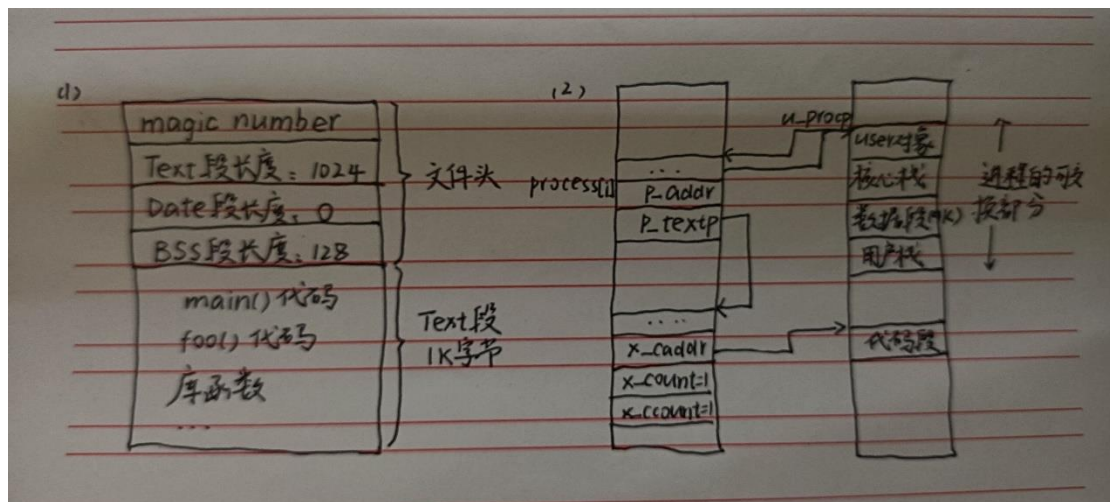 (1)
magic number
Text段长度：1024
Date段长度：0
BSS段长度：128
文件头
main()代码
foo()代码
库函数
...
Text段
1K字节
(2)
process[i]
...
p_addr
p_textp
....
x_caddr
x_count=1
x_ccount=1
u_procp
user对象
核心栈
数据段(4K)
用户栈
代码段
进程的可交
换部分